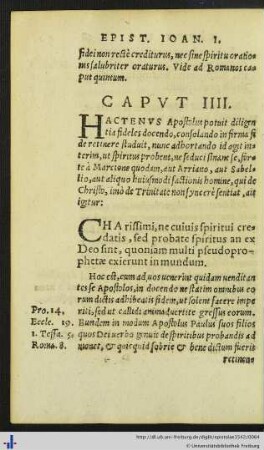 EPIST. IOAN. I.
fidei non rectè crediturus, nec sine spiritu oratio
nis salubriter oraturus. Vide ad Romanos ca
put quintum.
CAPVT IIII.
HACTENVS Apostolus potuit diligen
tia fideles docendo, consolando in firma fi
de retinere studuit, nunc adhortando id agit in
terim, ut spiritus probent, ne seduci sinant se, fór
tè à Marcione quodam, aut Arriano, aut Sabel
lio, aut aliquo huiusmodi factionis homine, qui de
Christo, imò de Trinitate non syncerè sentiat, ait
igitur:
CHArissimi, ne cuiuis spiritui cre
datis, sed probate spiritus an ex
Deo sint, quoniam multi pseudopro
phetæ exierunt in mundum.
Hoc est, cum ad uos uenerint quidam uenditan
tes se Apostolos, in docendo ne statim omnibus eo
rum dictis adhibeatis fidem, ut solent facere impe
Pro. 14. riti, sed ut callidi animaduertite gressus eorum.
Eccle. 19. Eundem in modum Apostolus Paulus suos filios
1. Tessa. 5. quos Dei uerbo genuit de spiritibus probandis ad
Roma. 8. monet, & quicquid sobrie & bene dictum fuerit
retinere
http://dl.ub.uni-freiburg.de/diglit/
© Universitätsbibliothek Freiburg